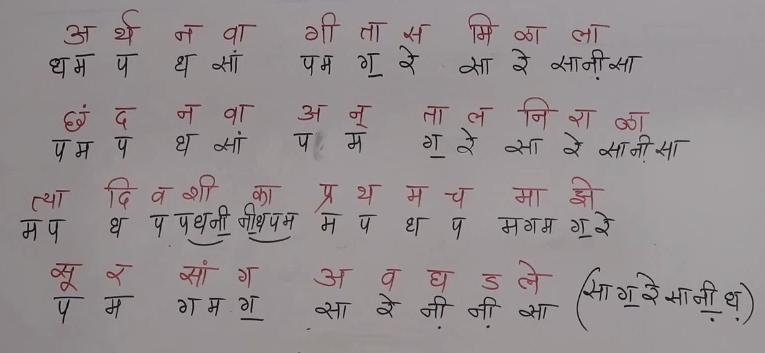 अ र्थ न वा गी ता स मि ळा ला
धम प ध सां पम ग॒ रे सा रे सानी़सा
छं द न वा अ न् ता ल नि रा ळा
पम प ध सां प म ग॒ रे सा रे सानी़सा
त्या दि व शी का प्र थ म च मा झे
मप ध प पधनी॒ नी॒धपम म प ध प मगम ग॒रे
सू र सां ग अ व घ ड ले
प म गमग॒ सा रे नी़ नी़ सा (साग॒रेसानी़॒ध़)